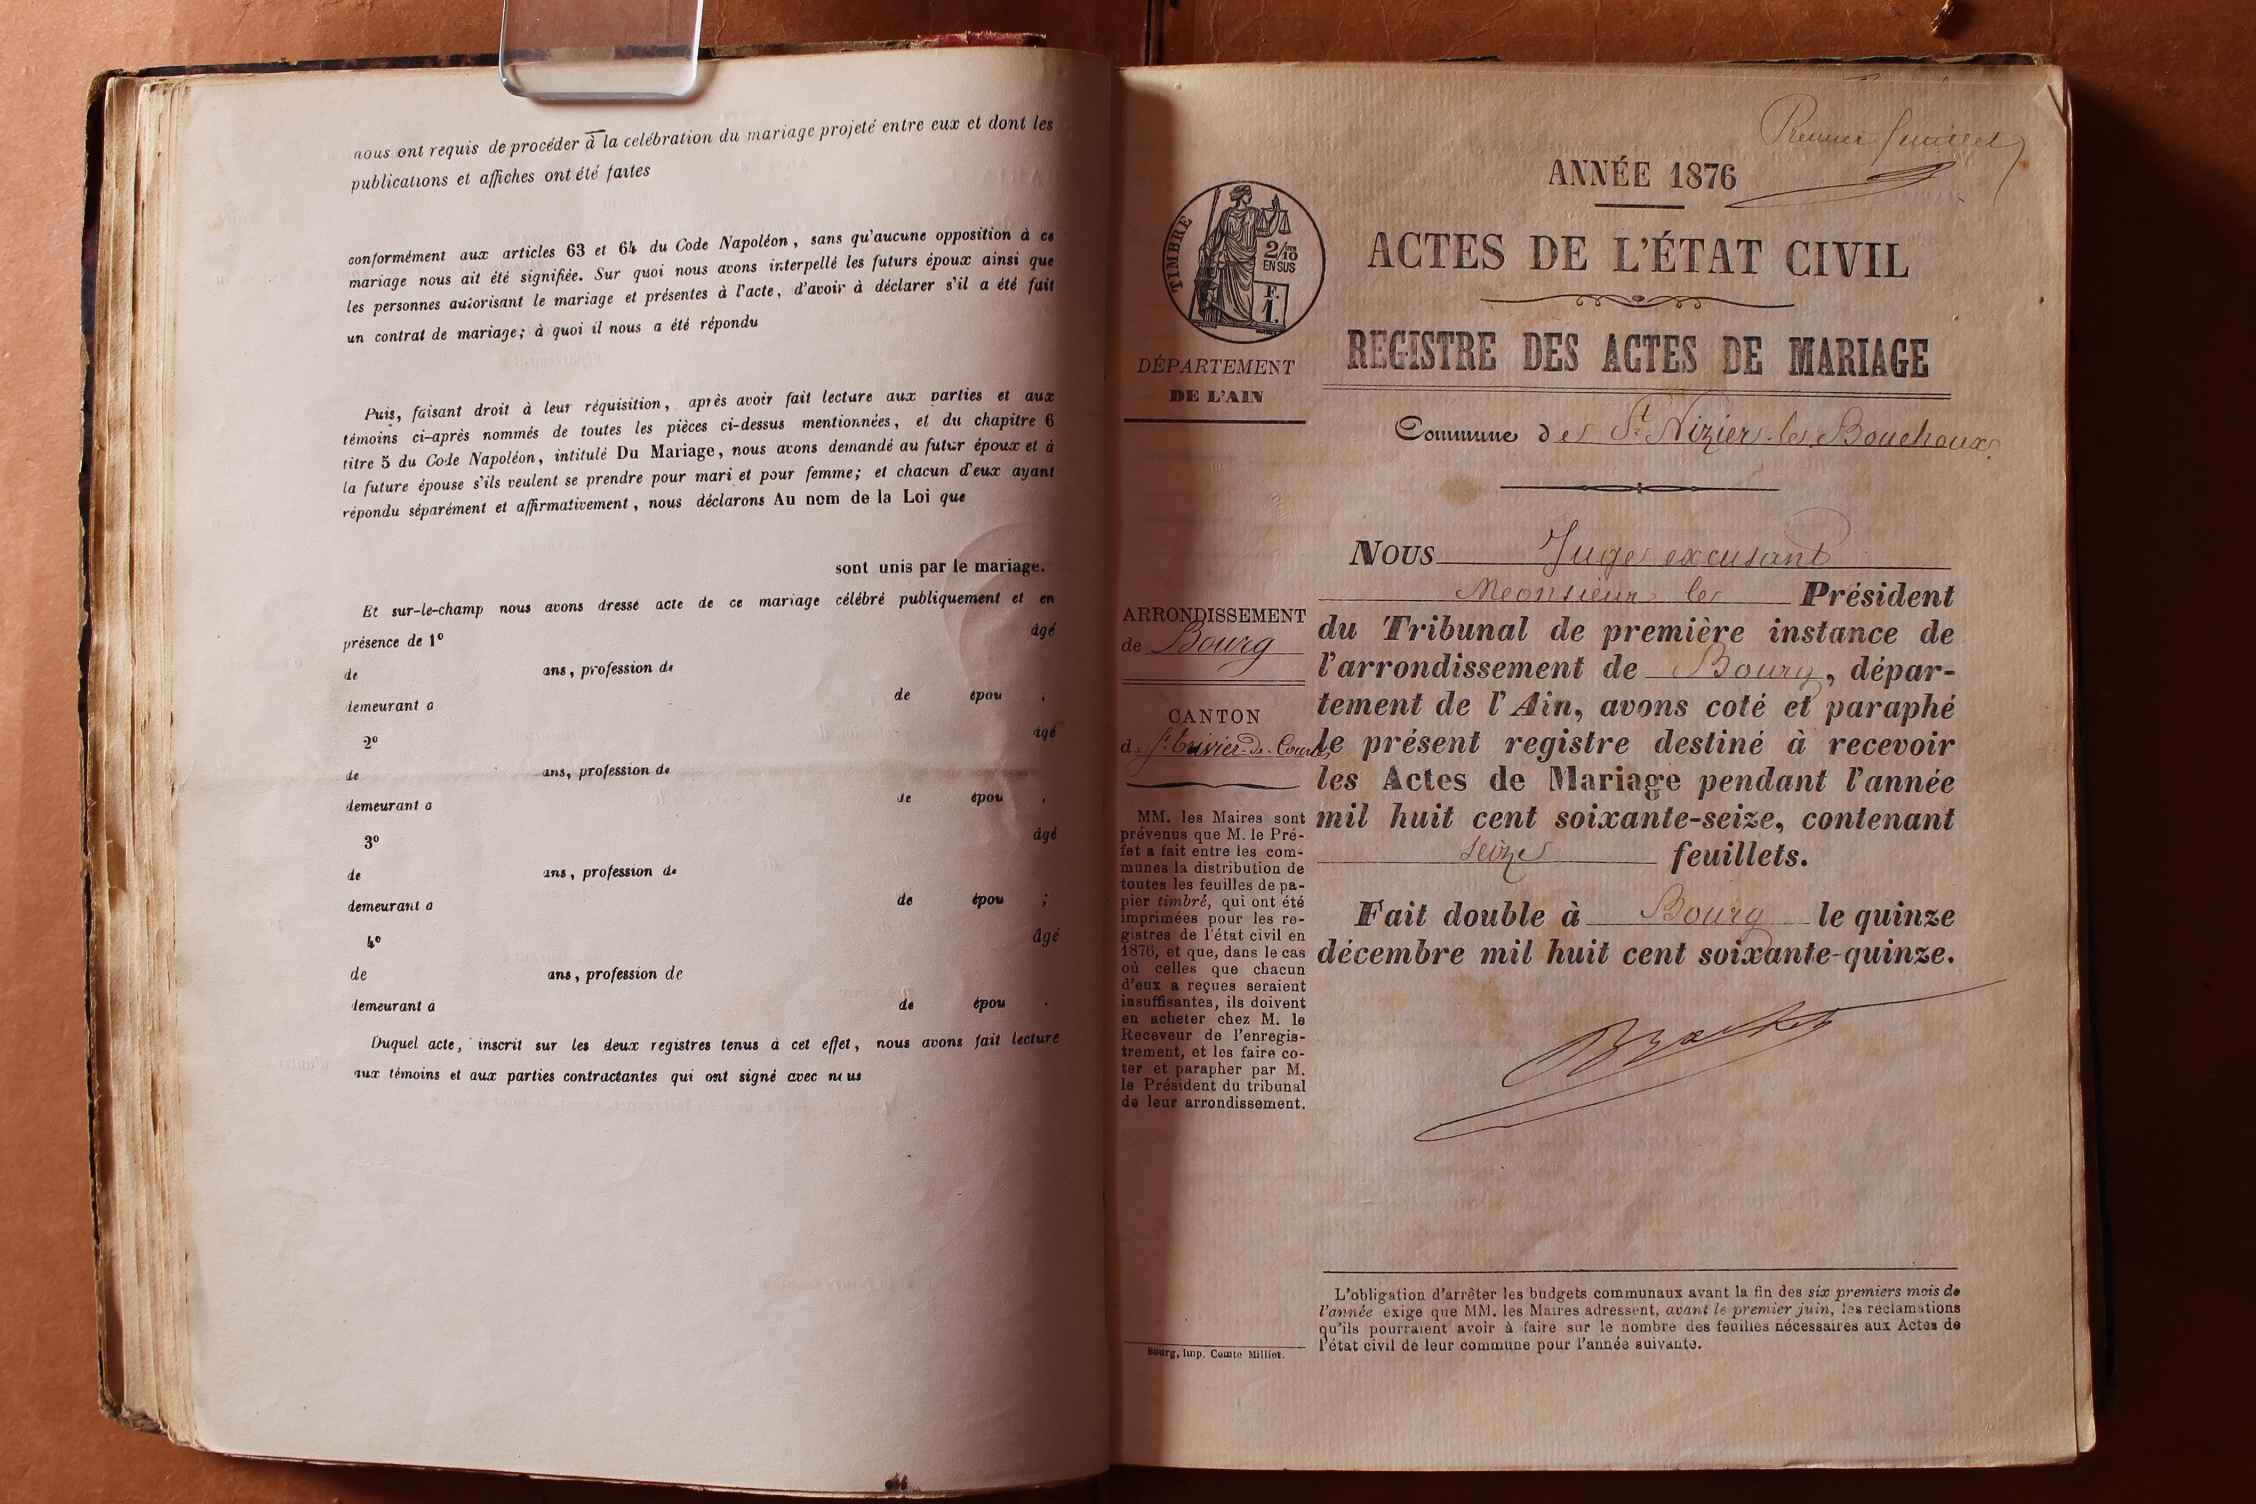 nous ont requis de procéder à la celébration du mariage projeté entre eux et dont les
publications et affiches ont été faites
conformément aux articles 63 et 64 du Code Napoléon, sans qu'aucune opposition à ce
mariage nous ait été signifiée. Sur quoi nous avons interpellé les futurs époux ainsi que
les personnes autorisant le mariage et présentes à l'acte, d'avoir à déclarer s'il a été fait
un contrat de mariage; à quoi il nous a été répondu
Puis, faisant droit à leur réquisition, après avoir fait lecture aux parties et aux
témoins ci-après nommés de toutes les pièces ci-dessus mentionnées, et du chapitre 6
titre 5 du Code Napoléon, intitulé Du Mariage, nous avons demandé au futur époux et à
la future épouse s'ils veulent se prendre pour mari et pour femme; et chacun d'eux ayant
répondu séparément et affirmativement, nous déclarons Au nom de la Loi que
sont unis par le mariage.
Et sur-le-champ nous avons dressé acte de ce mariage célébré publiquement et en
présence de 1º âgé
de ans, profession de
demeurant a de épou ,
2º âgé
de ans, profession de
demeurant a de épou ,
3º âgé
de ans, profession de
demeurant a de épou ;
4º âgé
de ans, profession de
demeurant à de épou .
Duquel acte, inscrit sur les deux registres tenus à cet effet, nous avons fait lecture
aux témoins et aux parties contractantes qui ont signé avec nous
Premier feuillet
ANNÉE 1876
ACTES DE L'ÉTAT CIVIL
REGISTRE DES ACTES DE MARIAGE
Commune de St Nizier-les-Bouchoux
TIMBRE
2/10
EN SUS
F.
1.
DÉPARTEMENT
DE L'AIN
ARRONDISSEMENT
de Bourg
CANTON
de St Trivier-de-Courtes
MM. les Maires sont
prévenus que M. le Pré-
fet a fait entre les com-
munes la distribution de
toutes les feuilles de pa-
pier timbré, qui ont été
imprimées pour les re-
gistres de l'état civil en
1876, et que, dans le cas
où celles que chacun
d'eux a reçues seraient
insuffisantes, ils doivent
en acheter chez M. le
Receveur de l'enregis-
trement, et les faire co-
ter et parapher par M.
le Président du tribunal
de leur arrondissement.
Bourg, Imp. Comte Milliet.
NOUS Juge excusant
Monsieur le Président
du Tribunal de première instance de
l'arrondissement de Bourg, dépar-
tement de l'Ain, avons coté et paraphé
le présent registre destiné à recevoir
les Actes de Mariage pendant l'année
mil huit cent soixante-seize, contenant
seize feuillets.
Fait double à Bourg le quinze
décembre mil huit cent soixante-quinze.
L'obligation d'arrêter les budgets communaux avant la fin des six premiers mois de
l'année exige que MM. les Maires adressent, avant le premier juin, les réclamations
qu'ils pourraient avoir à faire sur le nombre des feuilles nécessaires aux Actes de
l'état civil de leur commune pour l'année suivante.